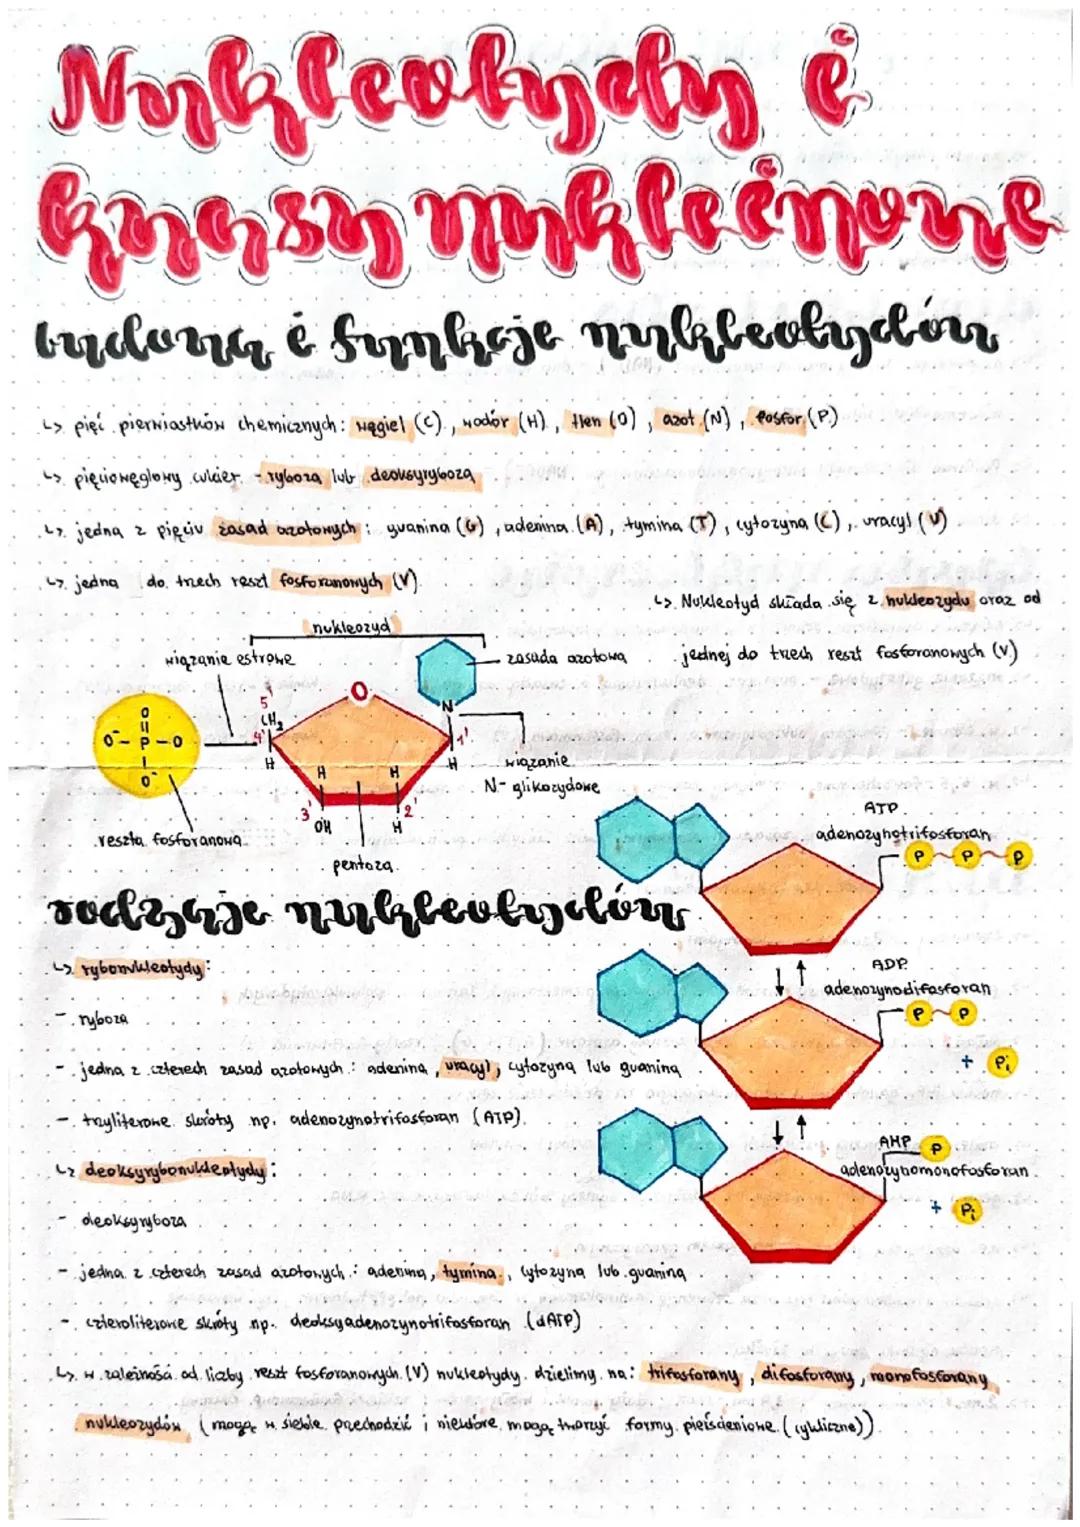 Nukleotydy i
kwasy nukleinowe
budowa i funkcje nukleotydów
↳ pięć pierwiastków chemicznych: węgiel (C), wodór (H), tlen (O), azot (N), fosfor (P)
↳ pięciowęglowy cukier - ryboza lub deoksyryboza
↳ jedna z pięciu zasad azotowych: guanina (G), adenina (A), tymina (T), cytozyna (C), uracyl (U)
↳ jedna do trzech reszt fosforanowych (V)
↳ Nukleotyd składa się z nukleozydu oraz od
jednej do trzech reszt fosforanowych (V)
nukleozyd
wiązanie estrowe
zasada azotowa
O
O⁻ - P - O
O⁻
5'
CH₂
4'
H
O
N
1'
H
H
H
3'
OH
2'
H
wiązanie
N-glikozydowe
reszta fosforanowa
pentoza
ATP
adenozynotrifosforan
P P P
rodzaje nukleotydów
↳ rybonukleotydy:
- ryboza
- jedna z czterech zasad azotowych: adenina, uracyl, cytozyna lub guanina
- trzyliterowe skróty np. adenozynotrifosforan (ATP)
↳ deoksyrybonukleotydy:
- deoksyryboza
- jedna z czterech zasad azotowych: adenina, tymina, cytozyna lub guanina
- czteroliterowe skróty np. deoksyadenozynotrifosforan (dATP)
ADP
adenozynodifosforan
P P
+ Pi
AMP P
adenozynomonofosforan
+ Pi
↳ w zależności od liczby reszt fosforanowych (V) nukleotydy dzielimy na: trifosforany, difosforany, monofosforany
nukleozydów (mogą w siebie przechodzić i niektóre mogą tworzyć formy pierścieniowe (cykliczne))